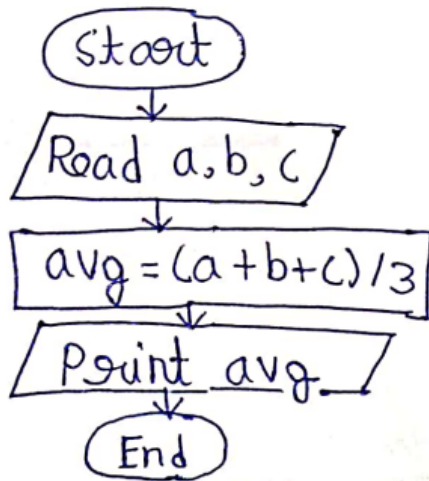 Start
Read a, b, c
avg = (a+b+c)/3
Print avg
End